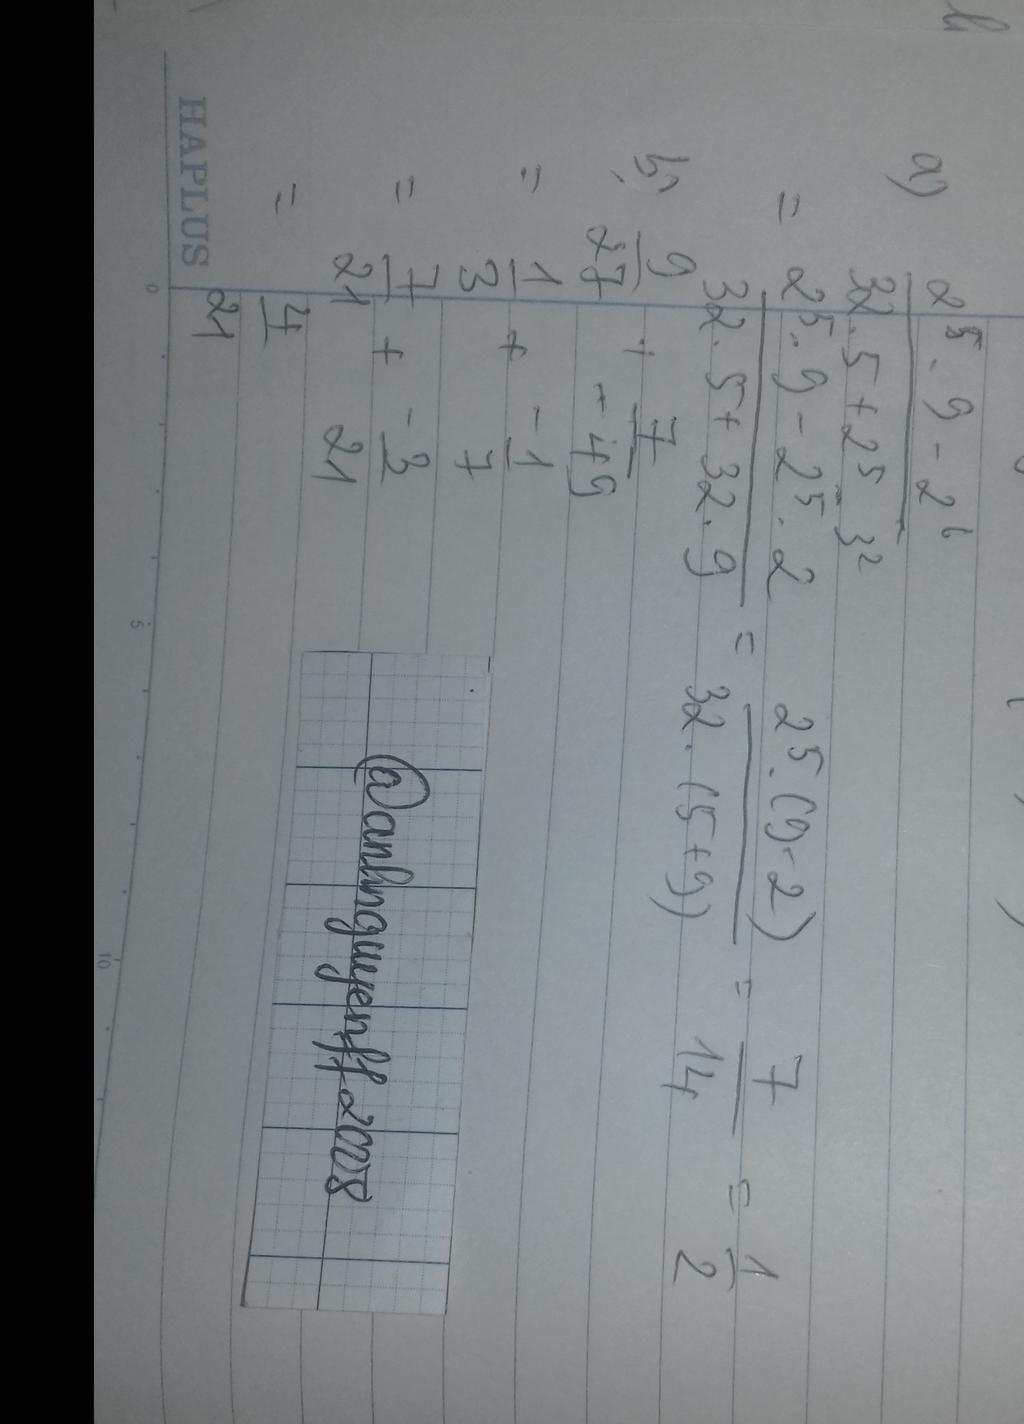 a) \frac{2^5 . 9 - 2^6}{32 . 5 + 2^5 . 3^2}
= \frac{2^5 . 9 - 2^5 . 2}{32 . 5 + 32 . 9} = \frac{2^5 . (9 - 2)}{32 . (5 + 9)} = \frac{7}{14} = \frac{1}{2}
b, \frac{9}{27} + \frac{7}{-49}
= \frac{1}{3} + \frac{-1}{7}
= \frac{7}{21} + \frac{-3}{21}
= \frac{4}{21}
@anhnguyenff2008
HAPLUS
0 5 10